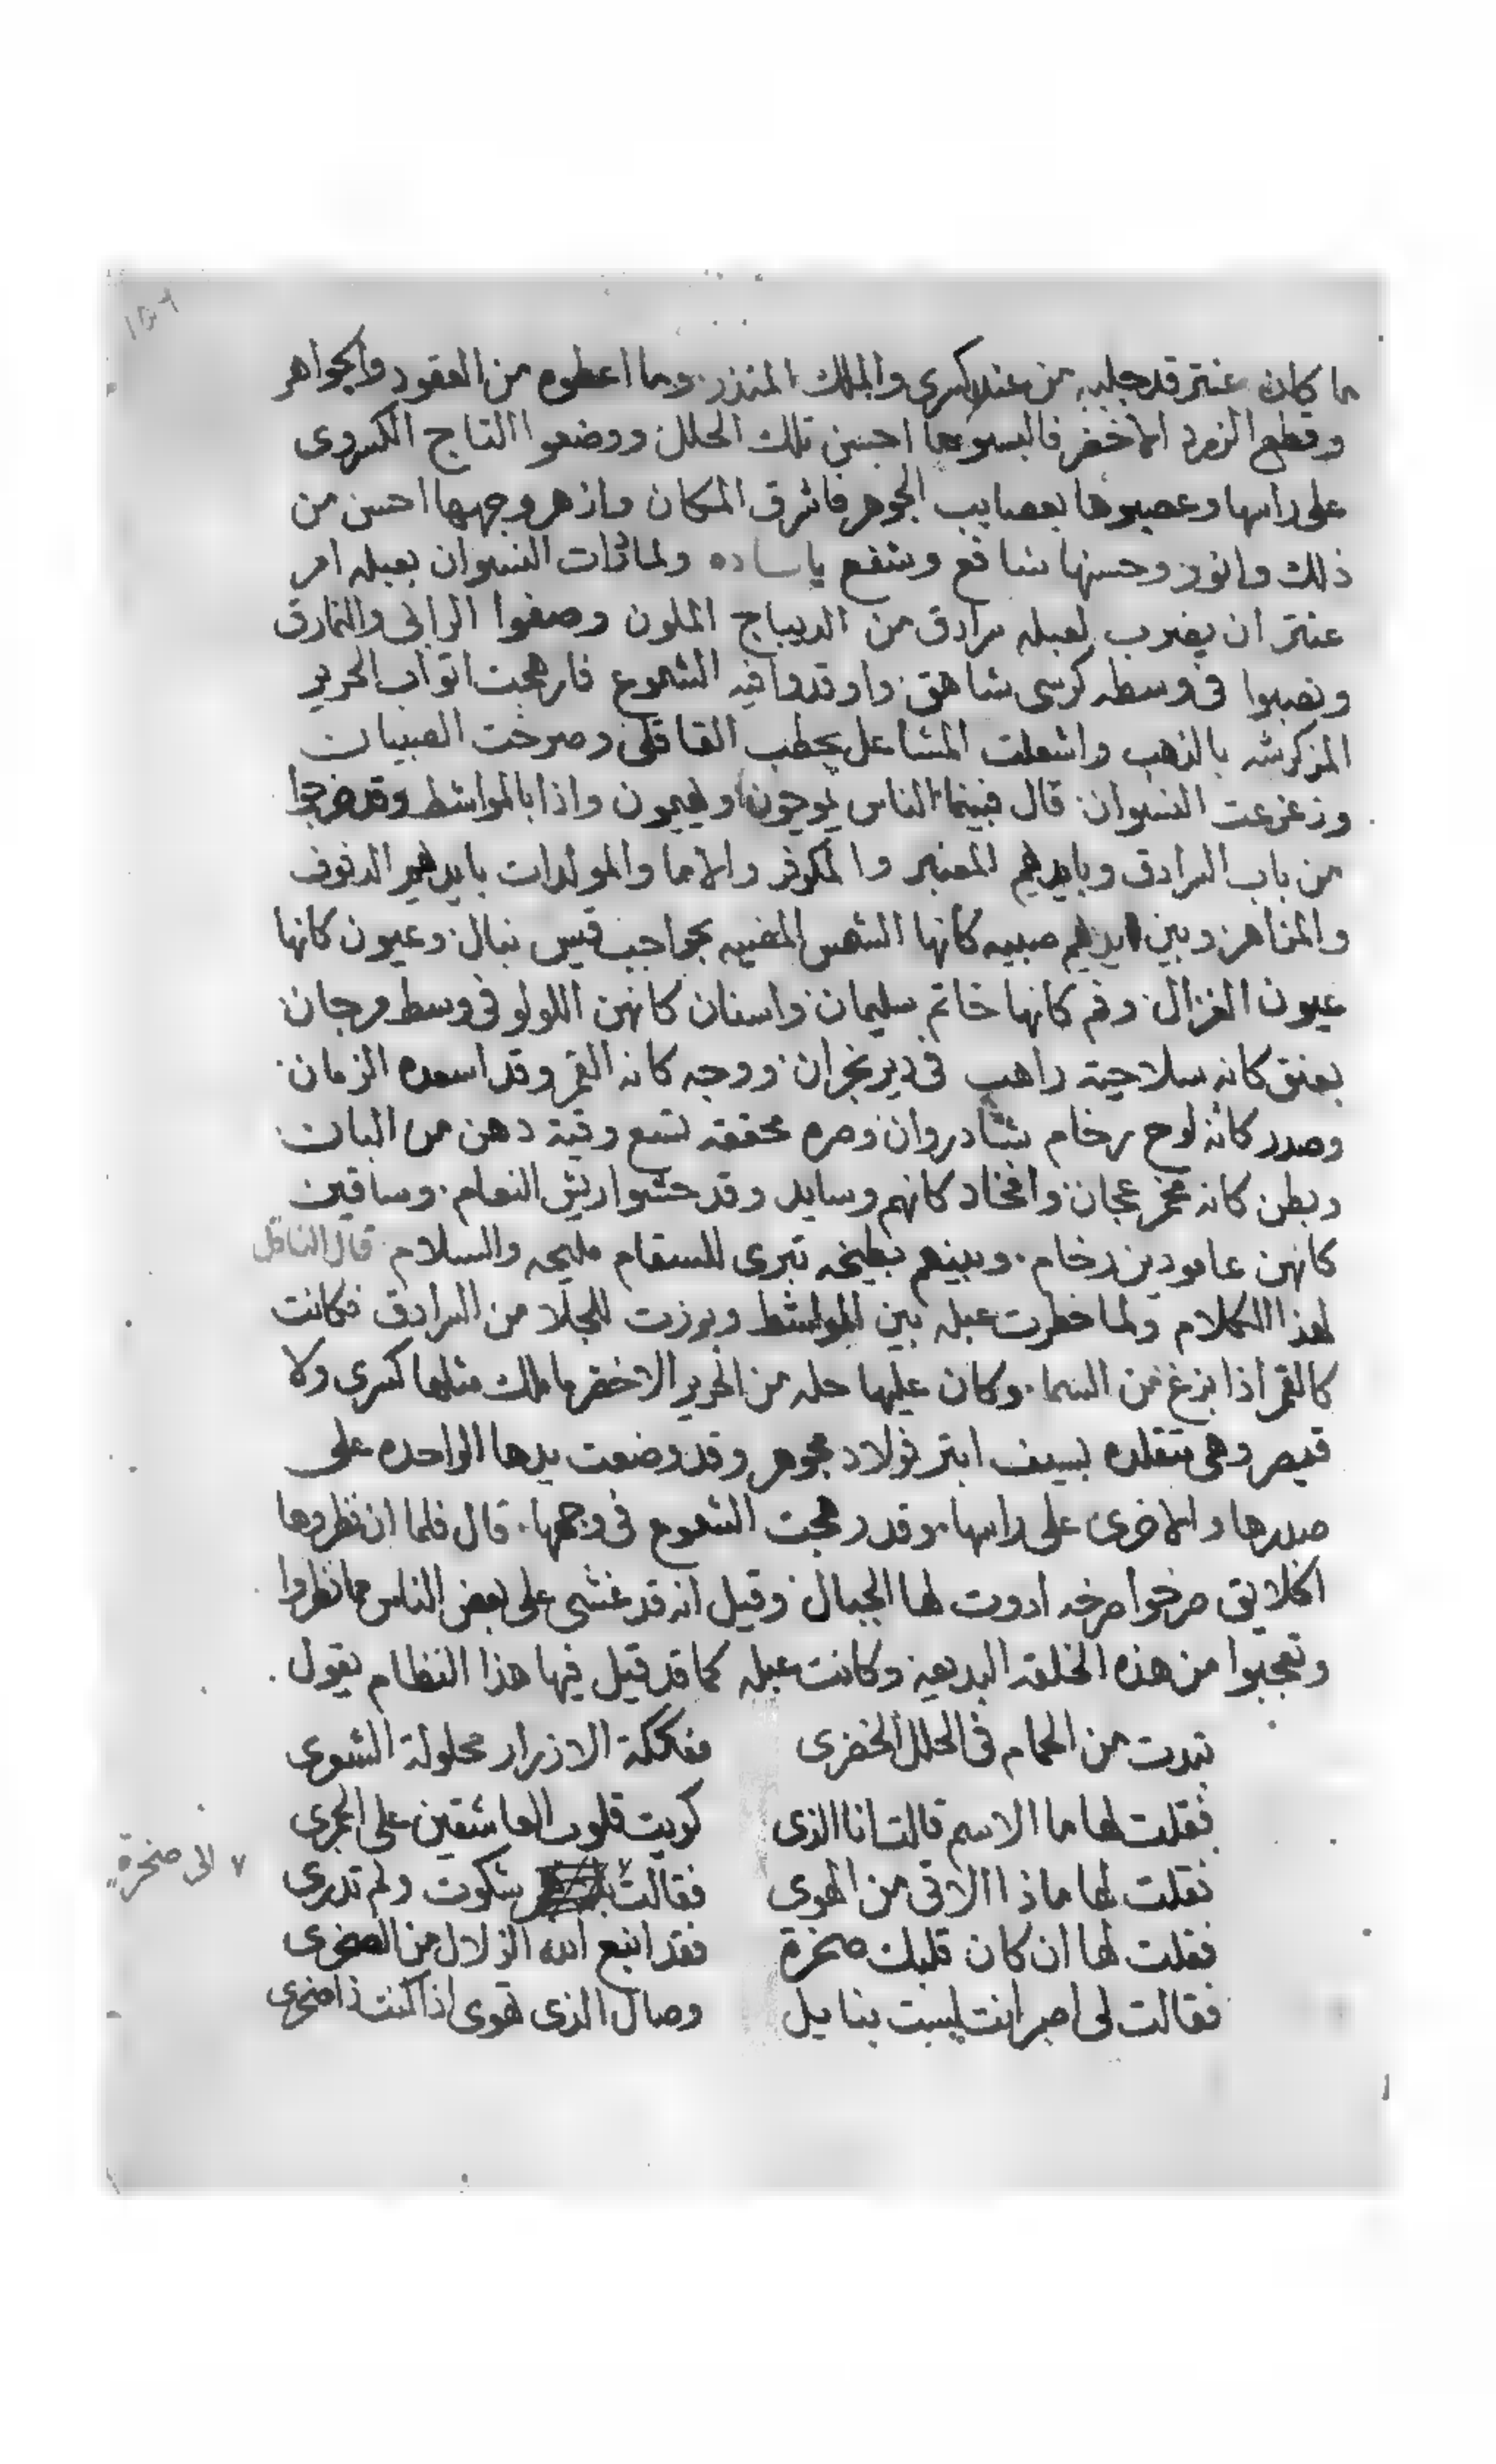 ١٥٦
ما كان عنتر قد جلبه من عند كسرى والملك المنذر وما اعطوه من العقود والجواهر
وقطع الزمرد الاخضر فالبسوها احسن تلك الحلل ووضعوا التاج الكسروى
على راسها وعصبوها بعصايب الجوهر فاشرق المكان وازهر وجهها احسن من
ذلك وانور وحسنها شافع وشفع ياساده ولما دارت النسوان بعبله امر
عنتر ان يضرب لعبله سرادق من الديباج الملون وصفوا الرابى والنمارق
ونصبوا فى وسطه كرسى شاهق واوقدوا فيه الشموع فارهجت اتواب الحرير
المزركشه بالذهب واشعلت المشاعل بحطب القاقلى وصرخت الصبيان
وزغرعت النسوان قال فبينما الناس يموجون ويهيمون واذا بالمواشط وقد خرجوا
من باب السرادق وبايديهم المعنبر والمكوفر والاما والمولدات بايديهم الدفوف
والمزاهر وبين ايديهم صبيه كانها الشمس المضيه بحواجب قيس نبال وعيون كانها
عيون الغزال وفم كانها خاتم سليمان واسنان كانهن اللولو فى وسط مرجان
بعنق كانه سلاحية راهب فى دير نجران ووجه كانه القمر وقد اسعده الزمان
وصدر كانه لوح رخام بشادروان وصره محققه تسع وقية دهن من البان
وبطن كانه عجان وافخاد كانهم وسايد وقد حشوا ريش النعام وساقين
كانهن عامودين رخام وبينهم بطيخه تبرى للسقام مليحه والسلام قال الناقل
لهذا الكلام ولما خطرت عبله بين المواشط وبرزت للجلا من السرادق فكانت
كالقمر اذا بزغ من السما وكان عليها حله من الحرير الاخضر ما ملك مثلها كسرى ولا
قيصر وهى متقلده بسيف ابتر فولاد مجوهر وقد وضعت يدها الواحده على
صدرها والاخرى على راسها وقد رهجت الشموع فى وجهها قال فلما ان نظروها
الخلايق صرخوا صرخه ادوت لها الجبال وقيل انه قد غشى على بعض الناس مما نظروا
وتعجبوا من هذه الخلقه البديعه وكانت عبله كما قد قيل فيها هذا النظام يقول
تبدت من الحمام فى الحلل الخضرى مفككة الازرار محلولة الشعوى
فقلت لها ما الاسم قالت انا الذى كويت قلوب العاشقين على الجمرى
فقلت لها ماذا الاقى من الهوى فقالت شكوت ولم تدرى
٧ الى صخرةٍ
فقلت لها ان كان قلبك صخرة فقد انبع الله الزلال من الصخرى
فقالت لى اصبر انت ليست بنايل وصال الذى تهوى اذا كنت ذا ضجرى